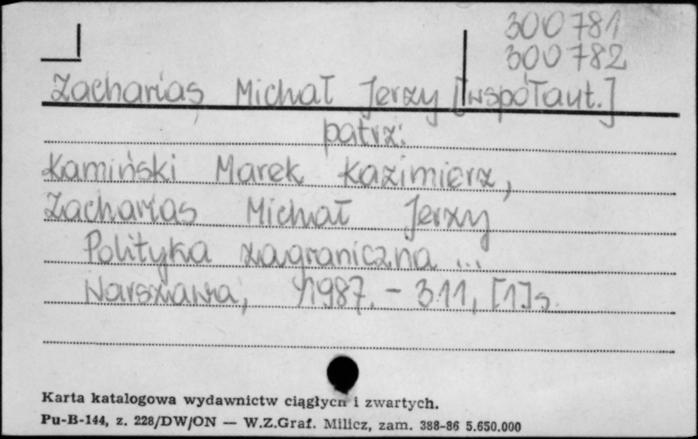 300781
300782
Zacharias Michał Jerzy [współaut.]
patrz:
Kamiński Marek Kazimierz,
Zacharias Michał Jerzy
Polityka zagraniczna ...
Warszawa, 1987. - 311, [1] s.
Karta katalogowa wydawnictw ciągłych i zwartych.
Pu-B-144, z. 228/DW/ON — W.Z.Graf. Milicz, zam. 388-86 5.650.000